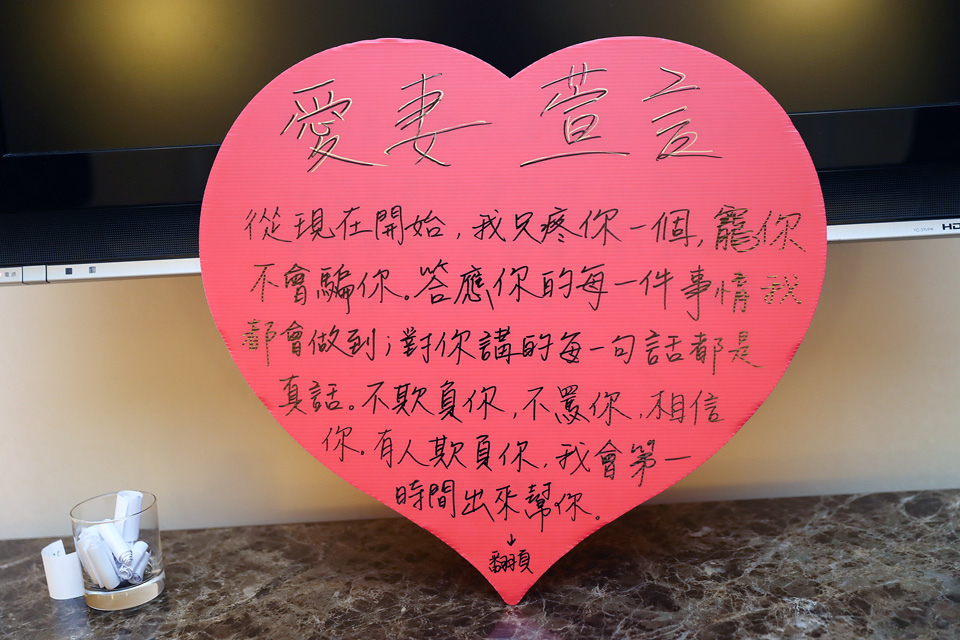 愛妻萱言
從現在開始,我只疼你一個,寵你
不會騙你。答應你的每一件事情我
都會做到;對你講的每一句話都是
真話。不欺負你,不罵你,相信
你。有人欺負你,我會第一
時間出來幫你。
↓
翻頁
HD